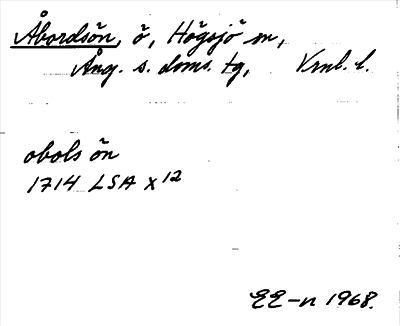 Åbordsön, ö, Högsjö sn,
Ång. s. doms. tg, Vrnl. l.
obols ön
1714 LSA X 12
EE-n 1968.